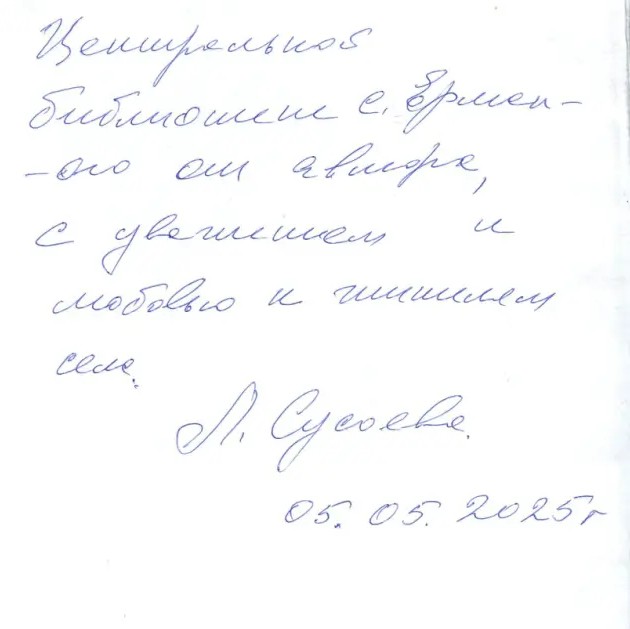 Центральной
библиотеке с. Ермак-
-ого от автора,
с уважением и
любовью к жителям
села.
Л. Сусоева.
05.05.2025г